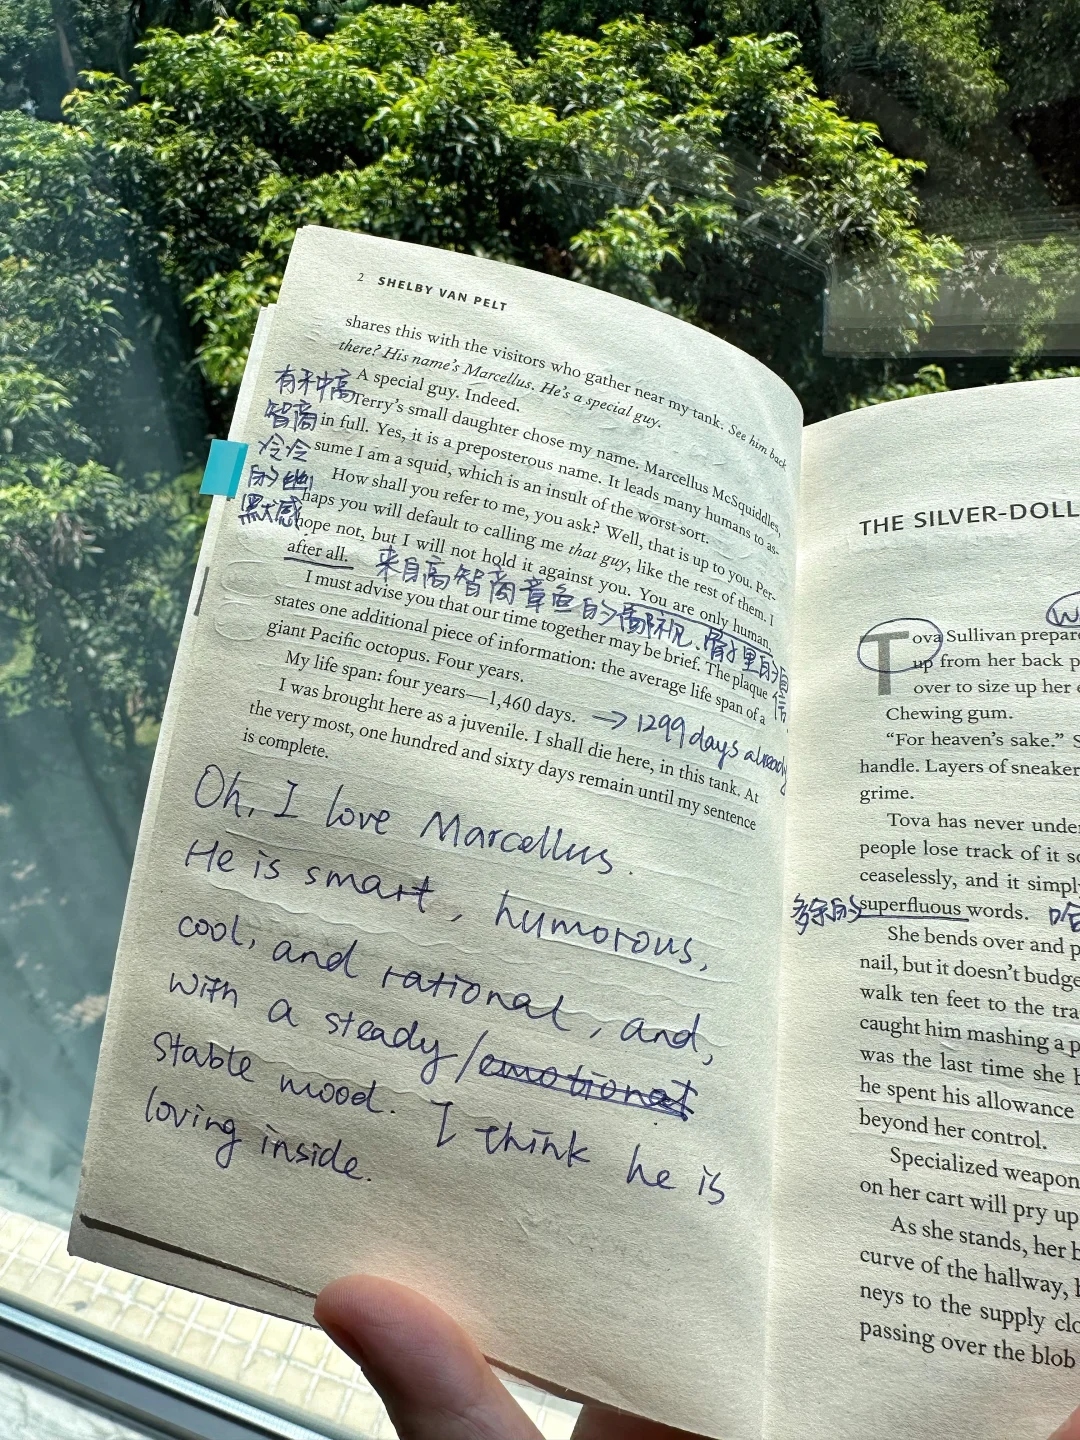 2 SHELBY VAN PELT
shares this with the visitors who gather near my tank. See him back
there? His name's Marcellus. He's a special guy.
A special guy. Indeed.
Terry's small daughter chose my name. Marcellus McSquiddles,
in full. Yes, it is a preposterous name. It leads many humans to as-
sume I am a squid, which is an insult of the worst sort.
How shall you refer to me, you ask? Well, that is up to you. Per-
haps you will default to calling me that guy, like the rest of them. I
hope not, but I will not hold it against you. You are only human,
after all.
I must advise you that our time together may be brief. The plaque
states one additional piece of information: the average life span of a
giant Pacific octopus. Four years.
My life span: four years—1,460 days.
I was brought here as a juvenile. I shall die here, in this tank. At
the very most, one hundred and sixty days remain until my sentence
is complete.
有种高
智商
冷冷
的幽
默感
来自高智商章鱼的
→ 1299 days already
Oh, I love Marcellus.
He is smart, humorous,
cool, and rational, and,
with a steady/emotional
stable mood. I think he is
loving inside.
THE SILVER-DOLL
Tova Sullivan prepare
up from her back p
over to size up her
Chewing gum.
"For heaven's sake." S
handle. Layers of sneaker
grime.
Tova has never unde
people lose track of it s
ceaselessly, and it simpl
多余的 superfluous words.
She bends over and p
nail, but it doesn't budge
walk ten feet to the tra
caught him mashing a p
was the last time she h
he spent his allowance
beyond her control.
Specialized weapon
on her cart will pry up
As she stands, her b
curve of the hallway, h
neys to the supply clo
passing over the blob